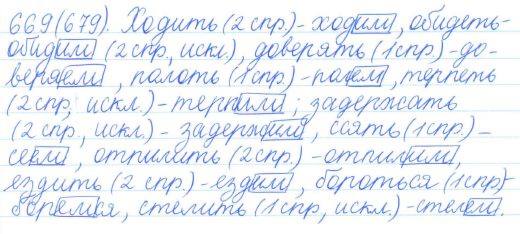 669(679). Ходить (2 спр.)- ходим, обидеть-
обидим (2 спр, искл.), доверять (1спр)-до-
веряем, полоть (1спр)-полем, терпеть
(2спр, искл.)-терпим; задержать
(2 спр, искл.)- задержим, сеять (1спр.)-
сеем, отпилить (2спр.)-отпилим,
ездить (2 спр.)-ездим, бороться (1спр)-
боремся, стелить (1спр, искл.)-стелем.